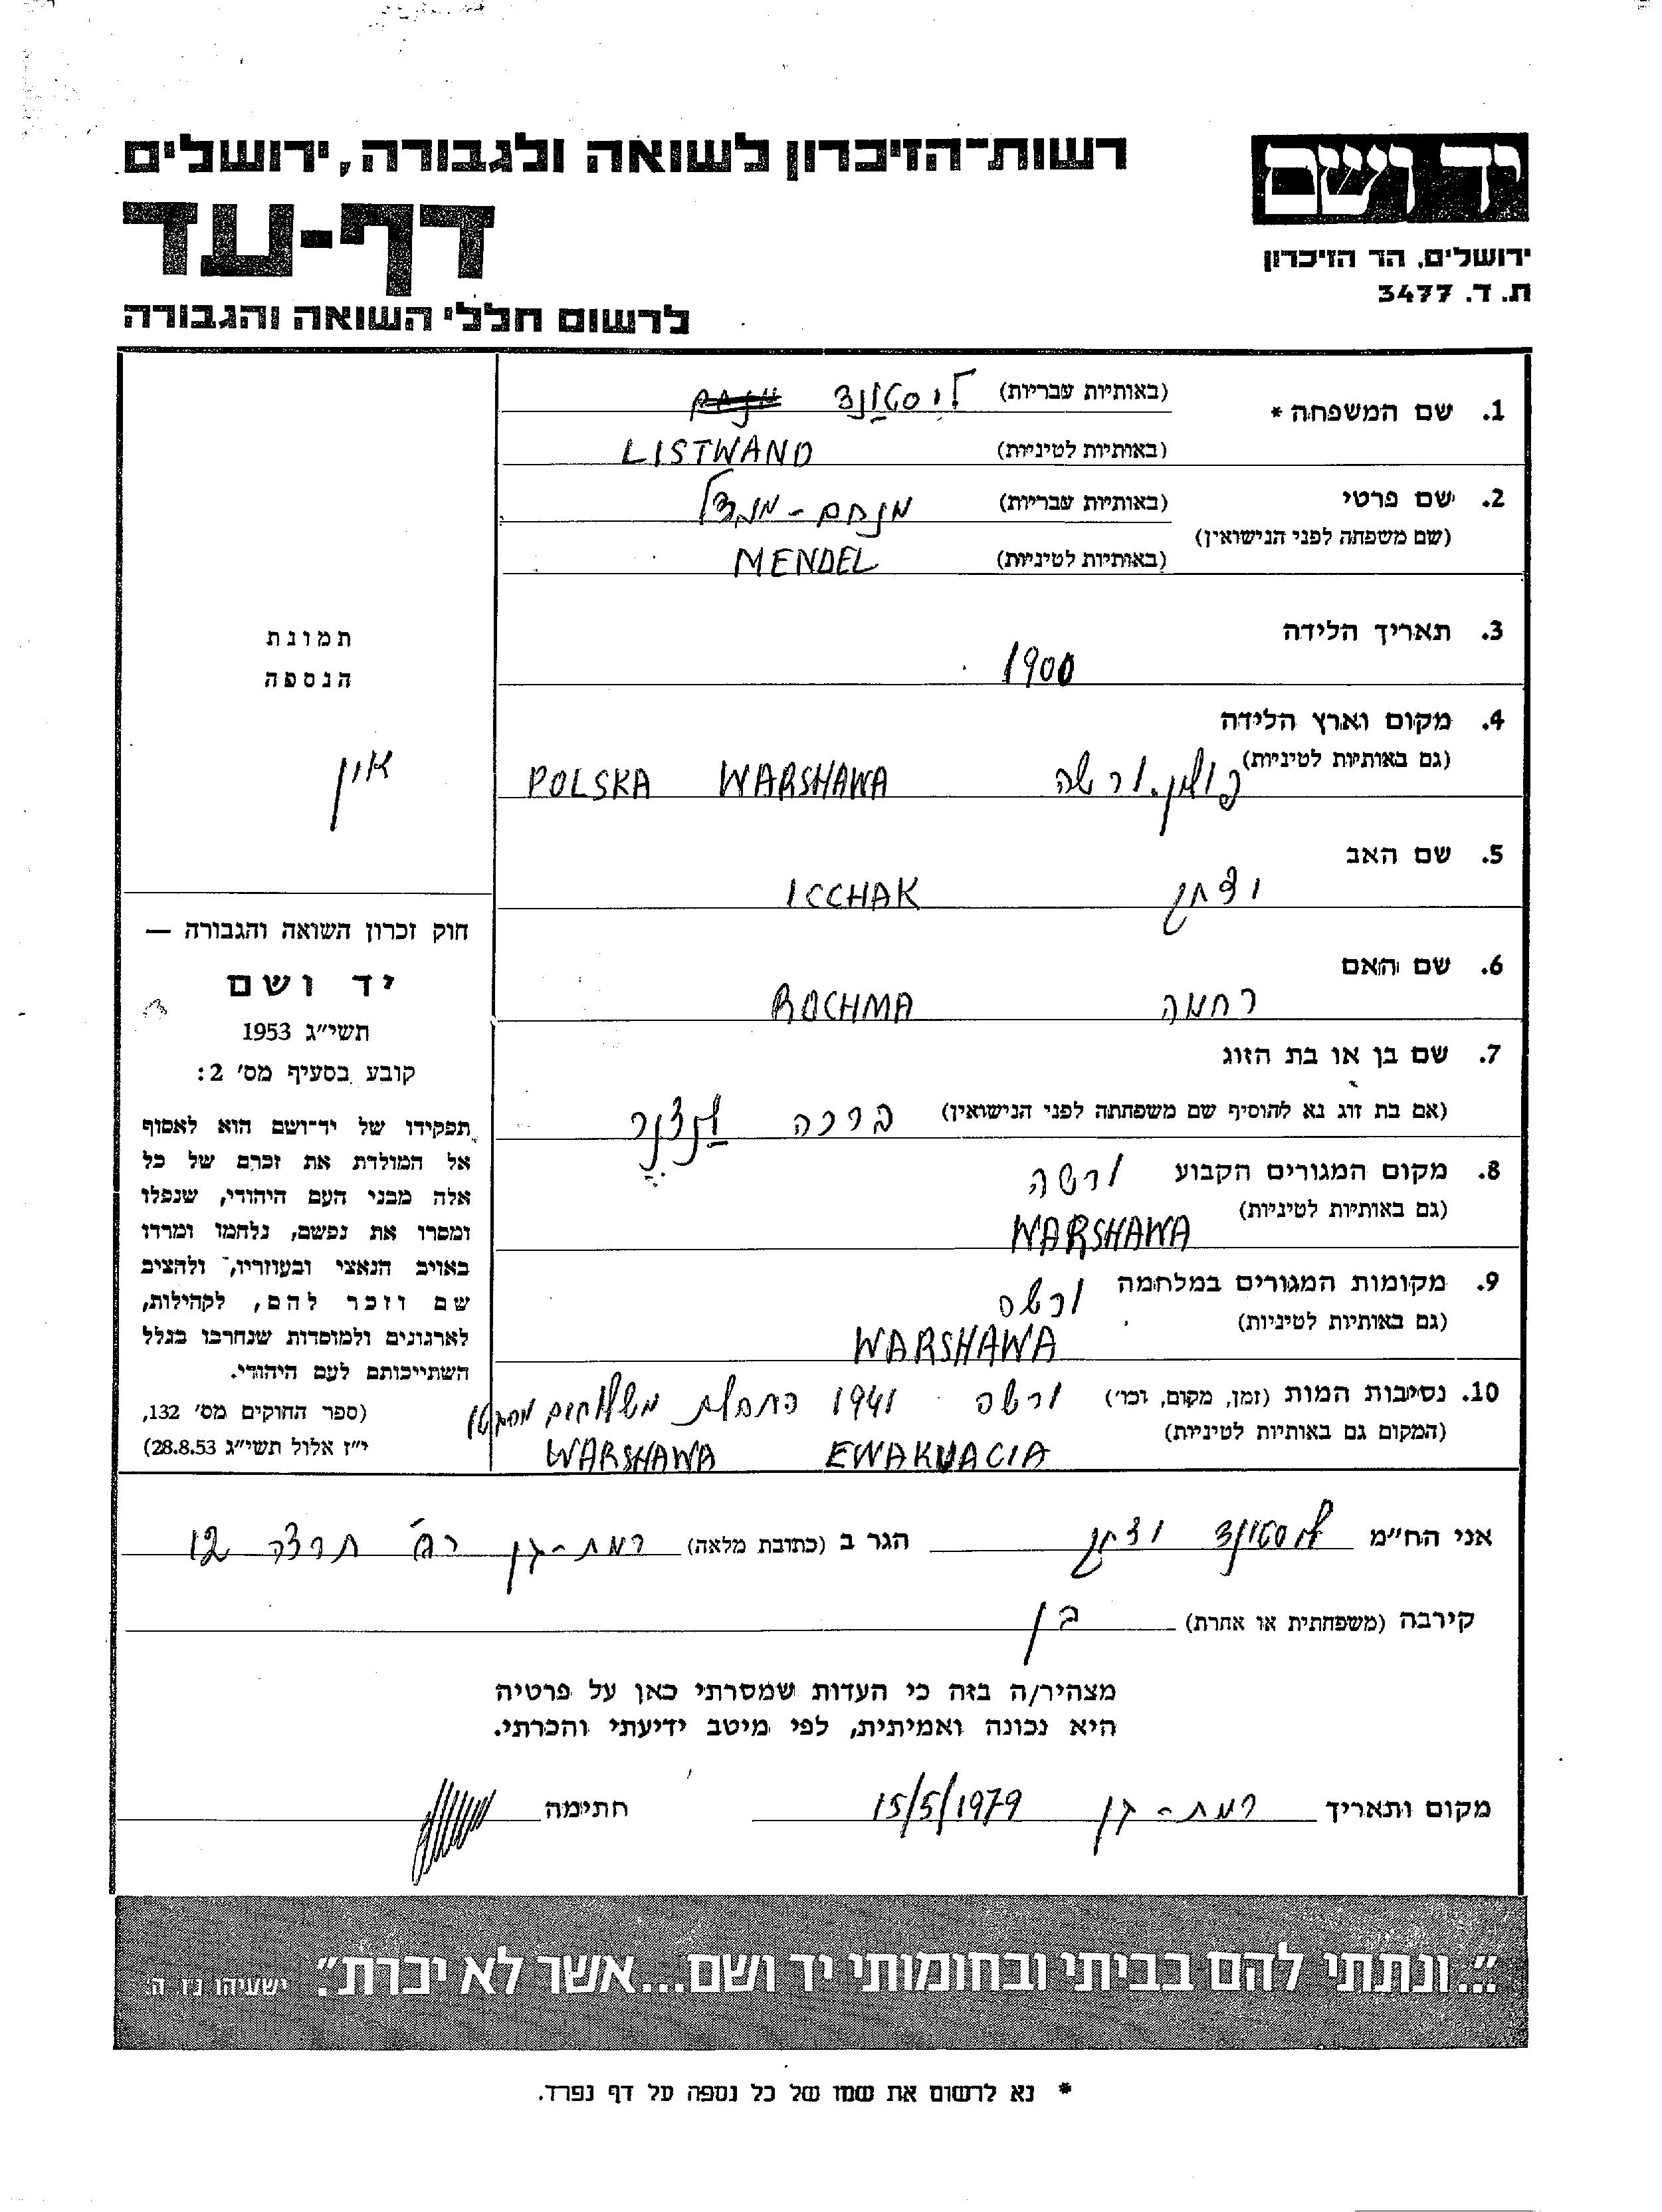 יד ושם
ירושלים, הר הזיכרון
ת. ד. 3477
רשות־הזיכרון לשואה ולגבורה, ירושלים
דף-עד
לרשום חללי השואה והגבורה
1. שם המשפחה * (באותיות עבריות) ליסטונד
(באותיות לטיניות) LISTWAND
2. שם פרטי (באותיות עבריות) מנחם - מנדל
(שם משפחה לפני הנישואין)
(באותיות לטיניות) MENDEL
3. תאריך הלידה
1900
4. מקום וארץ הלידה
(גם באותיות לטיניות) פולין. ורשה WARSHAWA POLSKA
5. שם האב
יצחק ICCHAK
6. שם האם
רחמה ROCHMA
7. שם בן או בת הזוג
(אם בת זוג נא להוסיף שם משפחתה לפני הנישואין) ברכה
8. מקום המגורים הקבוע ורשה
(גם באותיות לטיניות)
WARSHAWA
9. מקומות המגורים במלחמה ורשה
(גם באותיות לטיניות)
WARSHAWA
10. נסיבות המות (זמן, מקום, וכו') ורשה 1941 התחלת משלוחים
(המקום גם באותיות לטיניות)
EWAKUACIA WARSHAWA
תמונת
הנספה
אין
חוק זכרון השואה והגבורה —
יד ושם
תשי״ג 1953
קובע בסעיף מס' 2:
תפקידו של יד־ושם הוא לאסוף
אל המולדת את זכרם של כל
אלה מבני העם היהודי, שנפלו
ומסרו את נפשם, נלחמו ומרדו
באויב הנאצי ובעוזריו, ולהציב
שם וזכר להם, לקהילות,
לארגונים ולמוסדות שנחרבו בגלל
השתייכותם לעם היהודי.
(ספר החוקים מס' 132,
י״ז אלול תשי״ג 28.8.53)
אני הח״מ ליסטונד יצחק הגר ב (כתובת מלאה) רמת-גן רח' תרצה 12
קירבה (משפחתית או אחרת) בן
מצהיר/ה בזה כי העדות שמסרתי כאן על פרטיה
היא נכונה ואמיתית, לפי מיטב ידיעתי והכרתי.
מקום ותאריך רמת-גן 15/5/1979 חתימה
״...ונתתי להם בביתי ובחומותי יד ושם...אשר לא יכרת״. ישעיהו נ״ו, ה'.
* נא לרשום את שמו של כל נספה על דף נפרד.